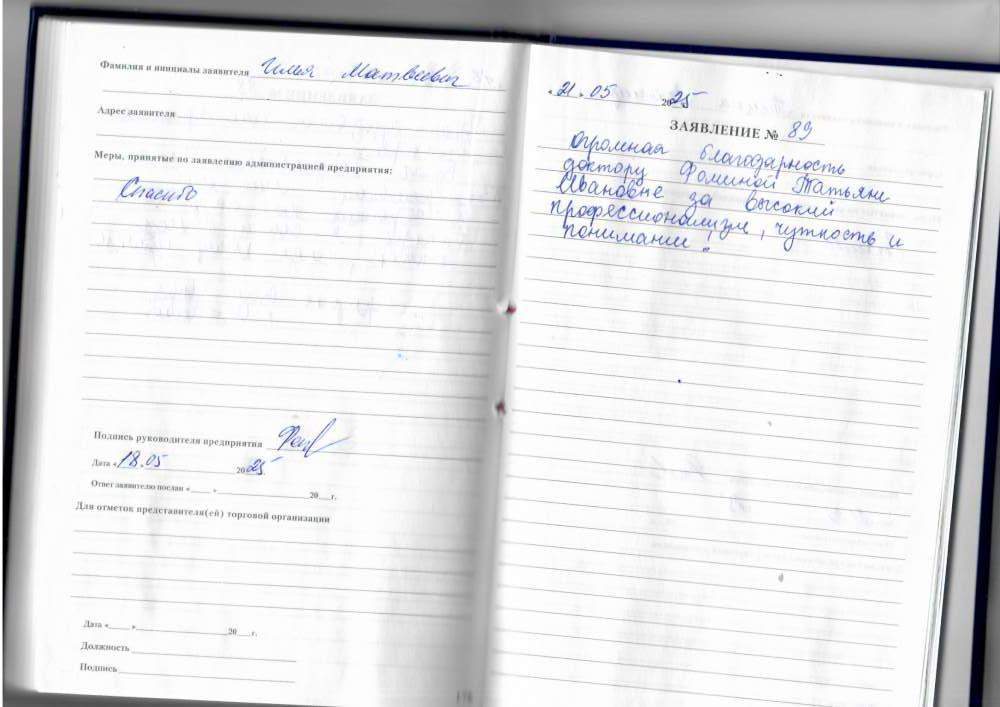 Фамилия и инициалы заявителя Илья Матвеевич
Адрес заявителя
Меры, принятые по заявлению администрацией предприятия:
Спасибо
Подпись руководителя предприятия
Дата «18.05 2025
Ответ заявителю послан «____ »____________________20___г.
Для отметок представителя(ей) торговой организации
Дата «_____ »____________________20____г.
Должность
Подпись
«21».05 2025
ЗАЯВЛЕНИЕ № 89
Огромная благодарность
доктору Фоминой Татьяне
Ивановне за высокий
профессионализм, чуткость и
понимание!